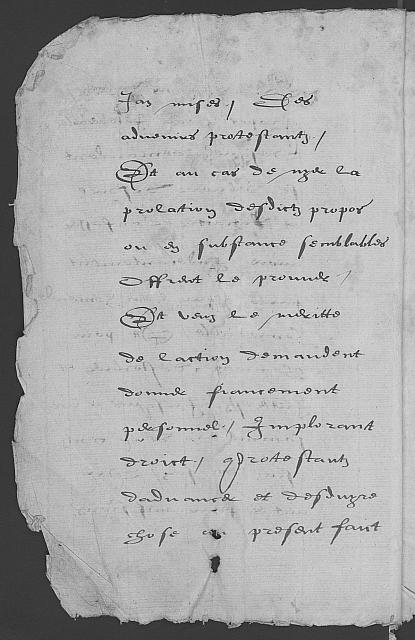 Jan mises / Des
advenirs protestantz /
Et au cas de nyer la
prolation desdictz propos
ou en substance semblables
Offrent le prouver /
Et veu le meritte
de laction demandent
donner fiancement
personnel / Implorant
droict / protestantz
dadvancer et desduyre
chose au present faict